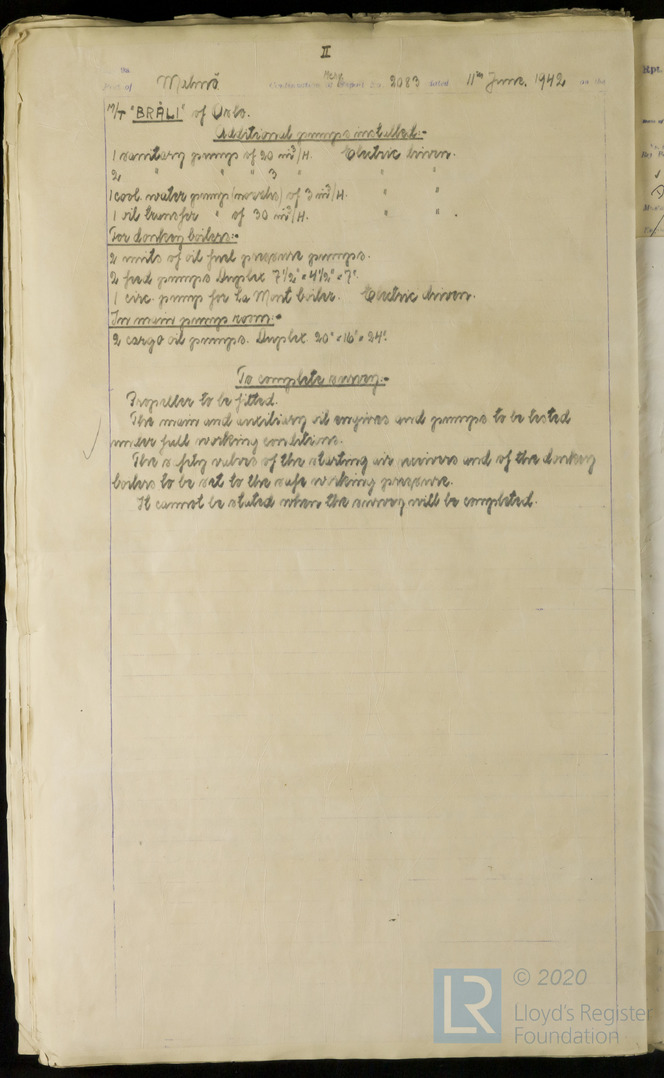 II
No.
Port of Malmö Continuation of Report No. 2083 dated 11th June, 1942 on the
M/T "BRÅLI" of Oslo.
Additional pumps installed:-
1 sanitary pump of 20 m³/H. Electric driven.
2 " " " 3 " " "
1 cool. water pump (nozzles) of 3 m³/H. " "
1 oil transfer " of 30 m³/H. " " .
For donkey boilers:-
2 units of oil fuel pressure pumps.
2 feed pumps Duplex 7½" × 4½" × 7".
1 circ. pump for La Mont boiler. Electric driven.
In main pump room:-
2 cargo oil pumps. Duplex 20" × 16" × 24".
To complete survey:-
Propeller to be fitted.
The main and auxiliary oil engines and pumps to be tested
under full working conditions.
The safety valves of the starting air receivers and of the donkey
boilers to be set to the safe working pressure.
It cannot be stated when the survey will be completed.
Rpt.
LR
© 2020
Lloyd's Register
Foundation